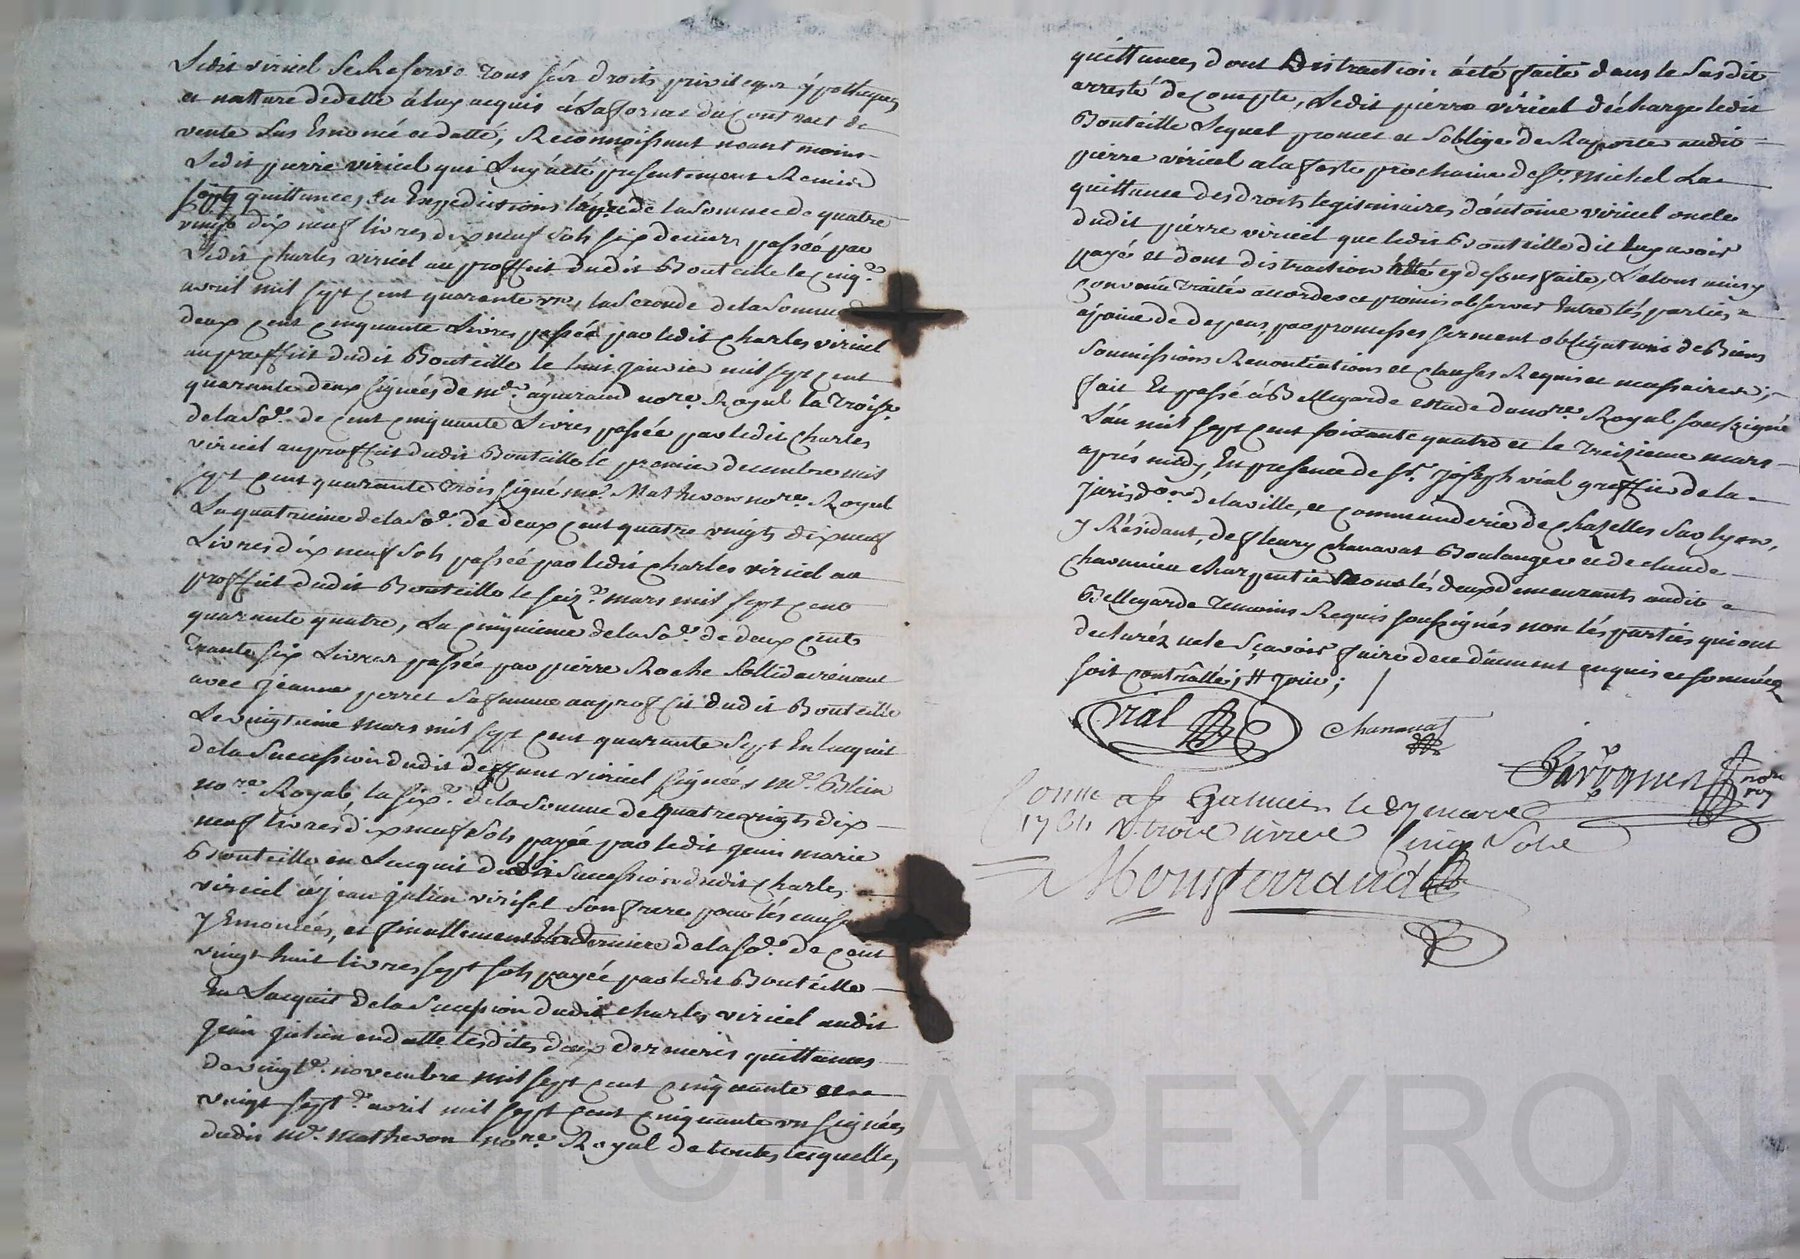 Ledit viriel se Reserve tous ses droits privileges ypotheques
et nature de dette à luy acquis à la forme du Contract de
vente sus Enoncé et datté, Reconnoissant neant moins
Ledit pierre viriel qui luy a été presentement Remis
sept quittances en Expeditions la pre de la somme de quatre
vingt dix neuf livres dix neuf sols six deniers passée par
Ledit Charles viriel au proffit dudit Bouteille le cinqe
avril mil sept cent quarante un, la seconde de la somme
deux cent cinquante Livres passée par ledit Charles viriel
au proffit dudit Bouteille le huit janvier mil sept cent
quarante deux signées de me nore Royal la troise
de la soe de cent cinquante Livres passée par ledit Charles
viriel au proffit dudit Bouteille le premier decembre mil
sept cent quarante trois signé me Mathevon nore Royal
La quatrieme de la soe de deux cent quatre vingts dix neuf
Livres dix neuf sols passée par ledit Charles viriel au
proffit dudit Bouteille le seize mars mil sept cent
quarante quatre, La cinquieme de la soe de deux cents
trante six Livres passée par pierre Roche sollidairement
avec jeanne perret sa femme au proffit dudit Bouteille
Le vingtieme mars mil sept cent quarante sept En lacquit
de la Succession dudit deffunt viriel signées me Blein
nore Royal, la sixe de la somme de quatre vingts dix
neuf livres dix neuf sols payée par ledit jean marie
Bouteille en Lacquit de la Sucession dudit Charles
viriel à jean julien viriel son frere pour les causes
y Enoncées, et finallement la derniere de la soe de cent
vingt huit livres sept sols payée par ledit Bouteille
En Lacquit de la Sucession dudit Charles viriel audit
jean julien en datte lesdites deux dernieres quittances
de vingte novembre mil sept cent cinquante et
vingt septe avril mil sept cent cinquante un signées
dudit me mathevon nore Royal de toutes lesquelles
quittances dont Distraction à été faite dans le susdit
arresté de compte, Ledit pierre viriel décharge ledit
Bouteille Lequel promet et s'oblige de Raporter audit
pierre viriel a la feste prochaine de St Michel La
quittance des droits legitimaires d'antoine viriel oncle
dudit pierre viriel que ledit Bouteille dit luy avoir
payé et dont distraction à été cy dessus faite, Le tout ainsy
convenu traité accordé et promis observer Entre les parties
à peine de depens, par promesses serment obligations de Biens
soumissions Renontiations et clauses Requises et necessaires;
fait Et passé à Bellegarde estude du nore Royal soussigné
L'an mil sept cent soixante quatre et le treizieme mars
après midy, En presence de sr joseph vial greffier de la
jurisdon de la ville, et commanderie de Chazelles sur lyon,
y Résidant, de fleury Chanavat Boulanger et de claude
charpentier tous les deux demeurants audit
Bellegarde temoins Requis soussignés non les parties qui ont
declarés ne le sçavoir faire de ce düement enquis et sommées
soit controllé;
Vial
Chanavat
nore roy
Conte a St Galmier le 27 mars
1764 R trois livres Cinq Sols
Monterrand
Pascal CHAREYRON